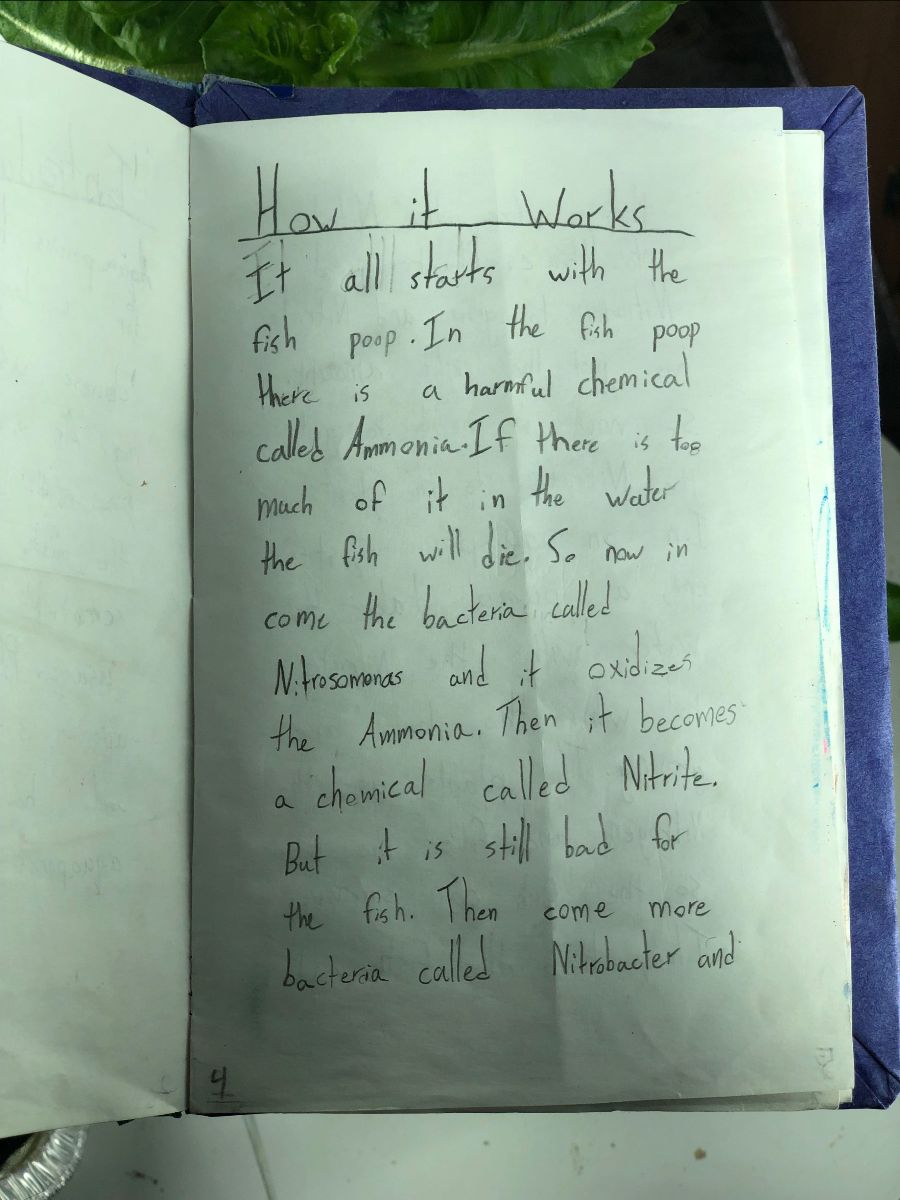 How it Works
It all starts with the
fish poop. In the fish poop
there is a harmful chemical
called Ammonia. If there is too
much of it in the water
the fish will die. So now in
come the bacteria called
Nitrosomonas and it oxidizes
the Ammonia. Then it becomes
a chemical called Nitrite.
But it is still bad for
the fish. Then come more
bacteria called Nitrobacter and
4